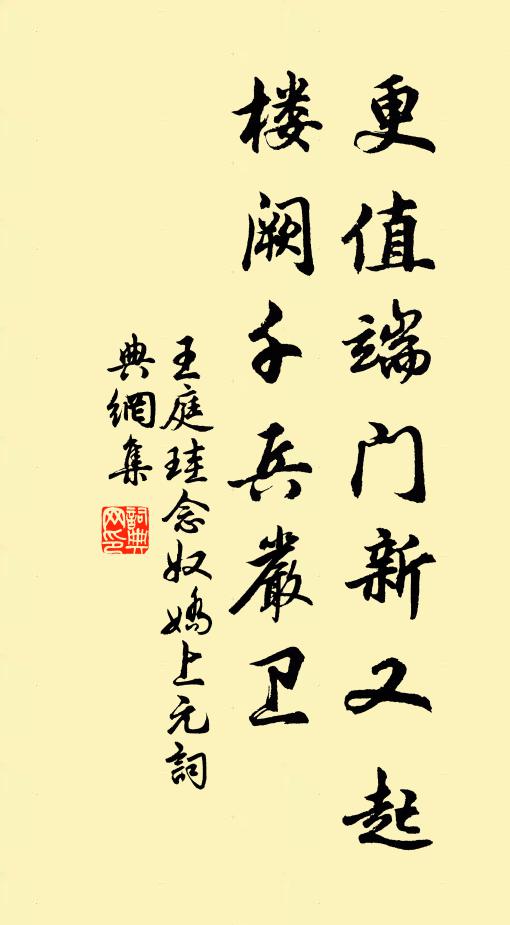 更值端门新又起
楼阙千兵嚴卫
王庭珪念奴嬌上元詞
典網集
詞典网印